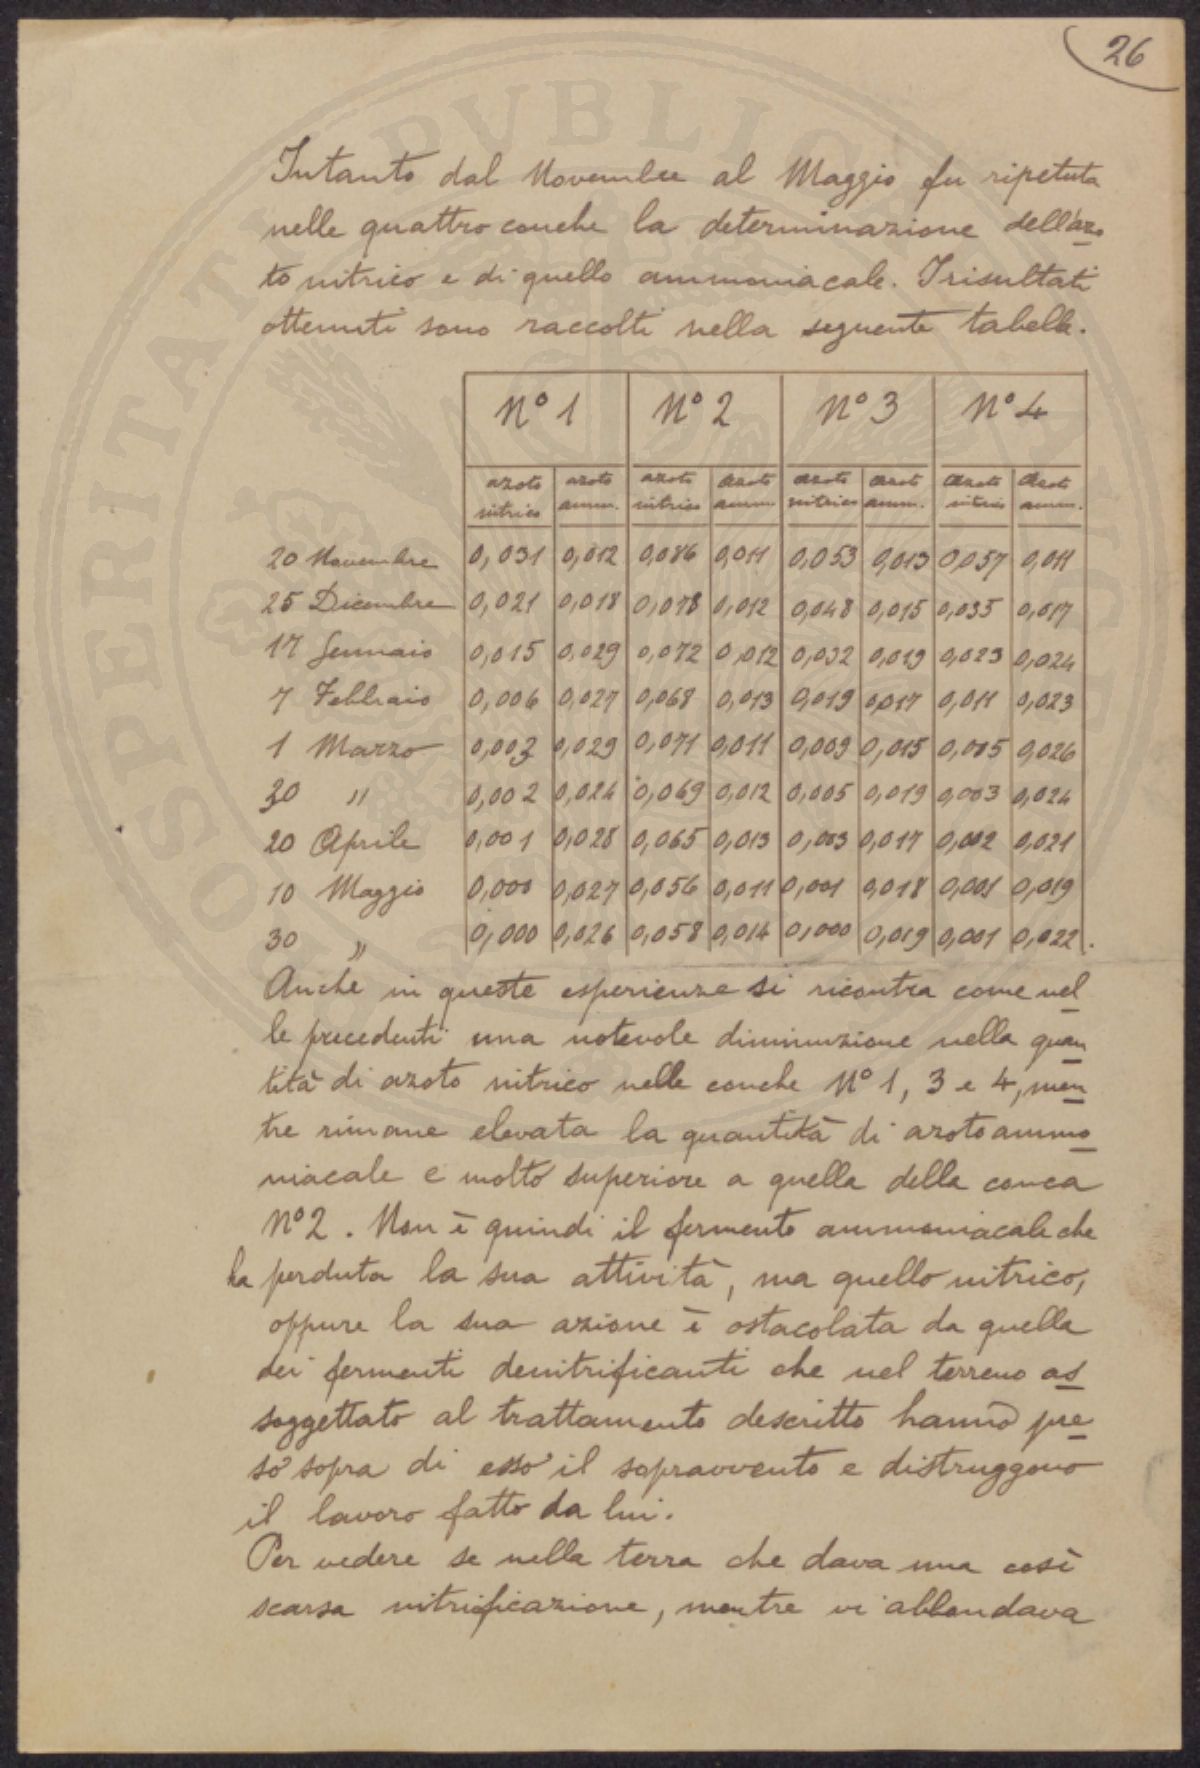 26
Intanto dal Novembre al Maggio fu ripetuta
nelle quattro conche la determinazione dell'azo
to nitrico e di quello ammoniacale. I risultati
ottenuti sono raccolti nella seguente tabella.
N° 1 N° 2 N° 3 N° 4
azoto azoto azoto azoto azoto azoto azoto azoto
nitrico amm. nitrico amm. nitrico amm. nitrico amm.
20 Novembre 0,031 0,012 0,086 0,011 0,053 0,013 0,057 0,011
25 Dicembre 0,021 0,018 0,078 0,012 0,048 0,015 0,035 0,017
17 Gennaio 0,015 0,029 0,072 0,012 0,032 0,019 0,023 0,024
7 Febbraio 0,006 0,027 0,068 0,013 0,019 0,017 0,011 0,023
1 Marzo 0,003 0,029 0,071 0,011 0,009 0,015 0,005 0,026
30 " 0,002 0,024 0,069 0,012 0,005 0,019 0,003 0,024
20 Aprile 0,001 0,028 0,065 0,013 0,003 0,017 0,002 0,021
10 Maggio 0,000 0,027 0,056 0,011 0,001 0,018 0,001 0,019
30 " 0,000 0,026 0,058 0,014 0,000 0,019 0,001 0,022.
Anche in queste esperienze si riscontra come nel
le precedenti una notevole diminuzione nella quan
tità di azoto nitrico nelle conche N° 1, 3 e 4, men
tre rimane elevata la quantità di azoto ammo
niacale e molto superiore a quella della conca
N° 2. Non è quindi il fermento ammoniacale che
ha perduta la sua attività, ma quello nitrico,
oppure la sua azione è ostacolata da quella
dei fermenti denitrificanti che nel terreno as
soggettato al trattamento descritto hanno pre
so sopra di esso il sopravvento e distruggono
il lavoro fatto da lui.
Per vedere se nella terra che dava una così
scarsa nitrificazione, mentre vi abbondava
PUBLICAE PROSPERITATI